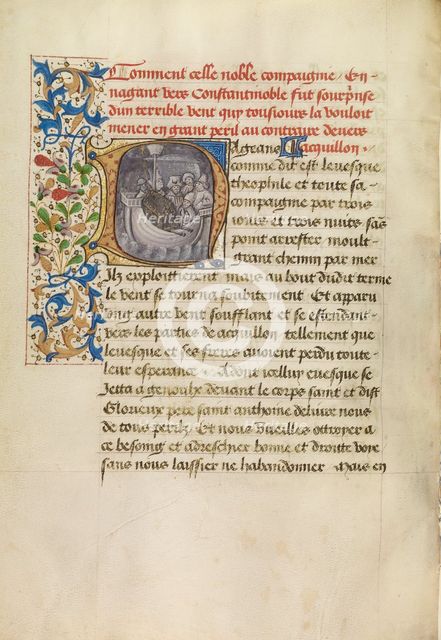 Comment celle noble compaignie En
nagant vers Constantnoble fut sourprinse
dun terrible vent quy tousiours la vouloit
mener en grant peril au contraire devers
Nageans Lacquillon
comme dit est levesque
theophile et toute sa
compaignie par trois
iours et trois nuits sans
point arrester moult
grant chemin par mer
Ilz exploittierent mais au bout dudit terme
le vent se tourna soubitement Et apparu
ung autre vent soufflant et se espendant
vers les parties de acquillon tellement que
levesque et ses freres avoient perdu toute
leur esperance Adont icelluy evesque se
Jetta a genoulx devant le corps saint et dist
Glorieux pere saint anthoine delivre nous
de tous perilz Et nous vueilles ottroyer a
ce besoing et adreschier bonne et droitte voye
sans nous laissier ne habandonner Mais en
Heritage